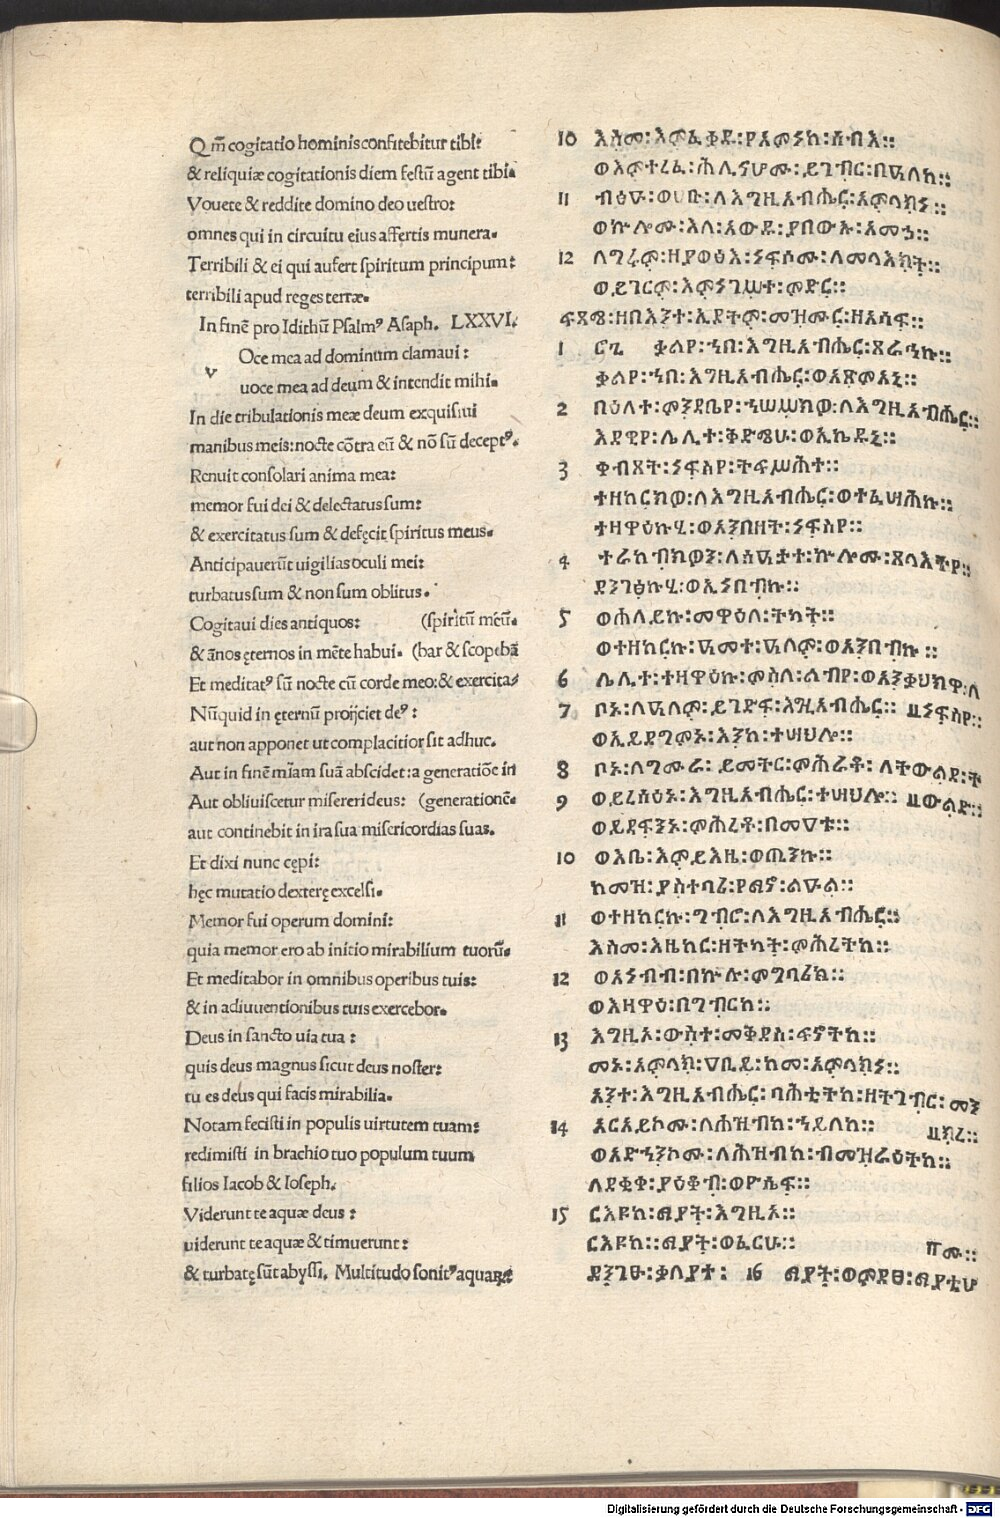 Qm̄ cogitatio hominis confitebitur tibi:
& reliquiæ cogitationis diem festū agent tibi.
Vouete & reddite domino deo uestro:
omnes qui in circuitu eius affertis munera.
Terribili & ei qui aufert spiritum principum:
terribili apud reges terræ.
In finē pro Idithū Psalmꝰ Asaph. LXXVI.
v Oce mea ad dominum clamaui:
uoce mea ad deum & intendit mihi.
In die tribulationis meæ deum exquisiui
manibus meis: nocte cōtra eū & nō sū deceptꝰ.
Renuit consolari anima mea:
memor fui dei & delectatus sum:
& exercitatus sum & defęcit spiritus meus.
Anticipauerūt uigilias oculi mei:
turbatus sum & non sum oblitus.
Cogitaui dies antiquos: (spiritū meū.
& ānos ęternos in mēte habui. (bar & scopebā
Et meditatꝰ sū nocte cū corde meo: & exercita
Nūquid in ęternū proijciet deꝰ:
aut non apponet ut complacitior sit adhuc.
Aut in finē mīam suā abscidet: a generatiōe in
Aut obliuiscetur misereri deus: (generationē.
aut continebit in ira sua misericordias suas.
Et dixi nunc cępi:
hęc mutatio dexterę excelsi.
Memor fui operum domini:
quia memor ero ab initio mirabilium tuorū.
Et meditabor in omnibus operibus tuis:
& in adiuuentionibus tuis exercebor.
Deus in sancto uia tua:
quis deus magnus sicut deus noster:
tu es deus qui facis mirabilia.
Notam fecisti in populis uirtutem tuam:
redimisti in brachio tuo populum tuum
filios Iacob & Ioseph.
Viderunt te aquæ deus:
uiderunt te aquæ & timuerunt:
& turbatę sūt abyssi. Multitudo sonitꝰ aquarū
10 እስመ፡እምፈቃዱ፡የአምነከ፡ሰብእ።
ወእምተረፈ፡ሕሊናሆሙ፡ይገብር፡በዓለከ።
11 ብፅዑ፡ወሀቡ፡ለእግዚአብሔር፡አምላክነ።
ወኵሎሙ፡እለ፡አውዱ፡ያበውኡ፡አምኃ።
12 ለግሩም፡ዘያወፅእ፡ነፍሶሙ፡ለመላእክት።
ወይገርም፡እምነገሥተ፡ምድር።
ፍጻሜ፡ዘበእንተ፡ኢዶቶም፡መዝሙር፡ዘአሳፍ።
1 ቃልየ፡ኀበ፡እግዚአብሔር፡ጸራኅኩ።
ቃልየ፡ኀበ፡እግዚአብሔር፡ወአጽምአኒ።
2 በዕለተ፡ምንዳቤየ፡ኀሠሥክዎ፡ለእግዚአብሔር።
እደዊየ፡ሌሊተ፡ቅድሜሁ፡ወኢኬዱኒ።
3 ቀብጸት፡ነፍስየ፡ትፍሥሕተ።
ተዘከርክዎ፡ለእግዚአብሔር፡ወተፈሣሕኩ።
ተዛዋዕኩሂ፡ወአንበዘት፡ነፍስየ።
4 ተራከብክዎን፡ለሰዓታት፡ኵሎሙ፡ጸላእትየ።
ደንገፅኩሂ፡ወኢነበብኩ።
5 ወሐለይኩ፡መዋዕለ፡ትካት።
ወተዘከርኩ፡ዓመተ፡ዓለም፡ወአንበብኩ።
6 ሌሊተ፡ተዛዋዕኩ፡ምስለ፡ልብየ፡ወአንቃህክዋ፡ለ
7 ቦኑ፡ለዓለም፡ይገድፍ፡እግዚአብሔር። ነፍስየ።
ወኢይደግምኑ፡እንከ፡ተሣህሎ።
8 ቦኑ፡ለግሙራ፡ይመትር፡ምሕረቶ፡ለትውልደ፡ት
9 ወይረስዕኑ፡እግዚአብሔር፡ተሣህሎ። ውልድ።
ወይደፍንኑ፡ምሕረቶ፡በመዓቱ።
10 ወእቤ፡እምይእዜ፡ወጠንኩ።
ከመዝ፡ያስተባሪ፡የማኖ፡ልዑል።
11 ወተዘከርኩ፡ግብሮ፡ለእግዚአብሔር።
እስመ፡እዜከር፡ዘትካት፡ምሕረትከ።
12 ወአነብብ፡በኵሉ፡ምግባሪከ።
ወእዛዋዕ፡በግብርከ።
13 እግዚኦ፡ውስተ፡መቅደስ፡ፍኖትከ።
መኑ፡አምላክ፡ዓቢይ፡ከመ፡አምላክነ።
አንተ፡እግዚአብሔር፡ባሕቲትከ፡ዘትገብር፡መን
14 አርአይኮሙ፡ለሕዝብከ፡ኀይለከ። ክረ።
ወአድኀንኮሙ፡ለሕዝብከ፡በመዝራዕትከ።
ለደቂቀ፡ያዕቆብ፡ወዮሴፍ።
15 ርእዩከ፡ማያት፡እግዚኦ።
ርእዩከ፡ማያት፡ወፈርሁ። ሙ።
ደንገፁ፡ቀላያተ፡ 16 ማያት፡ወምደፀ፡ማያቲሆ
Digitalisierung gefördert durch die Deutsche Forschungsgemeinschaft - DFG